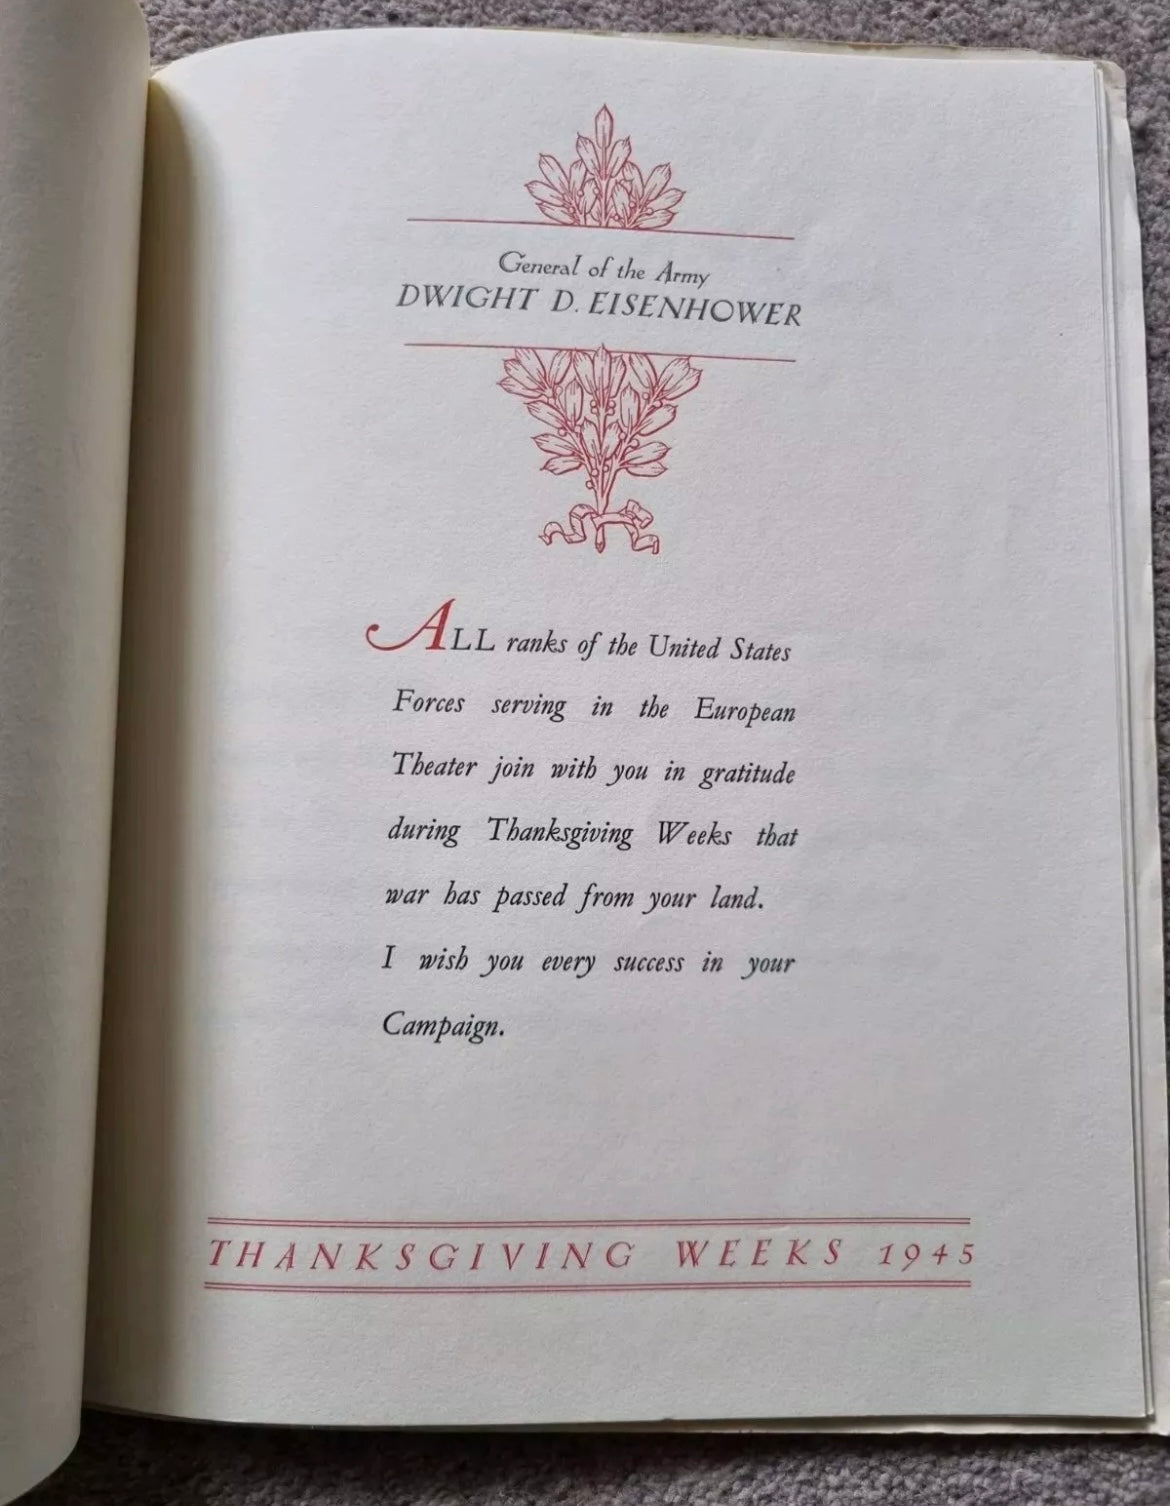 General of the Army
DWIGHT D. EISENHOWER
ALL ranks of the United States
Forces serving in the European
Theater join with you in gratitude
during Thanksgiving Weeks that
war has passed from your land.
I wish you every success in your
Campaign.
THANKSGIVING WEEKS 1945